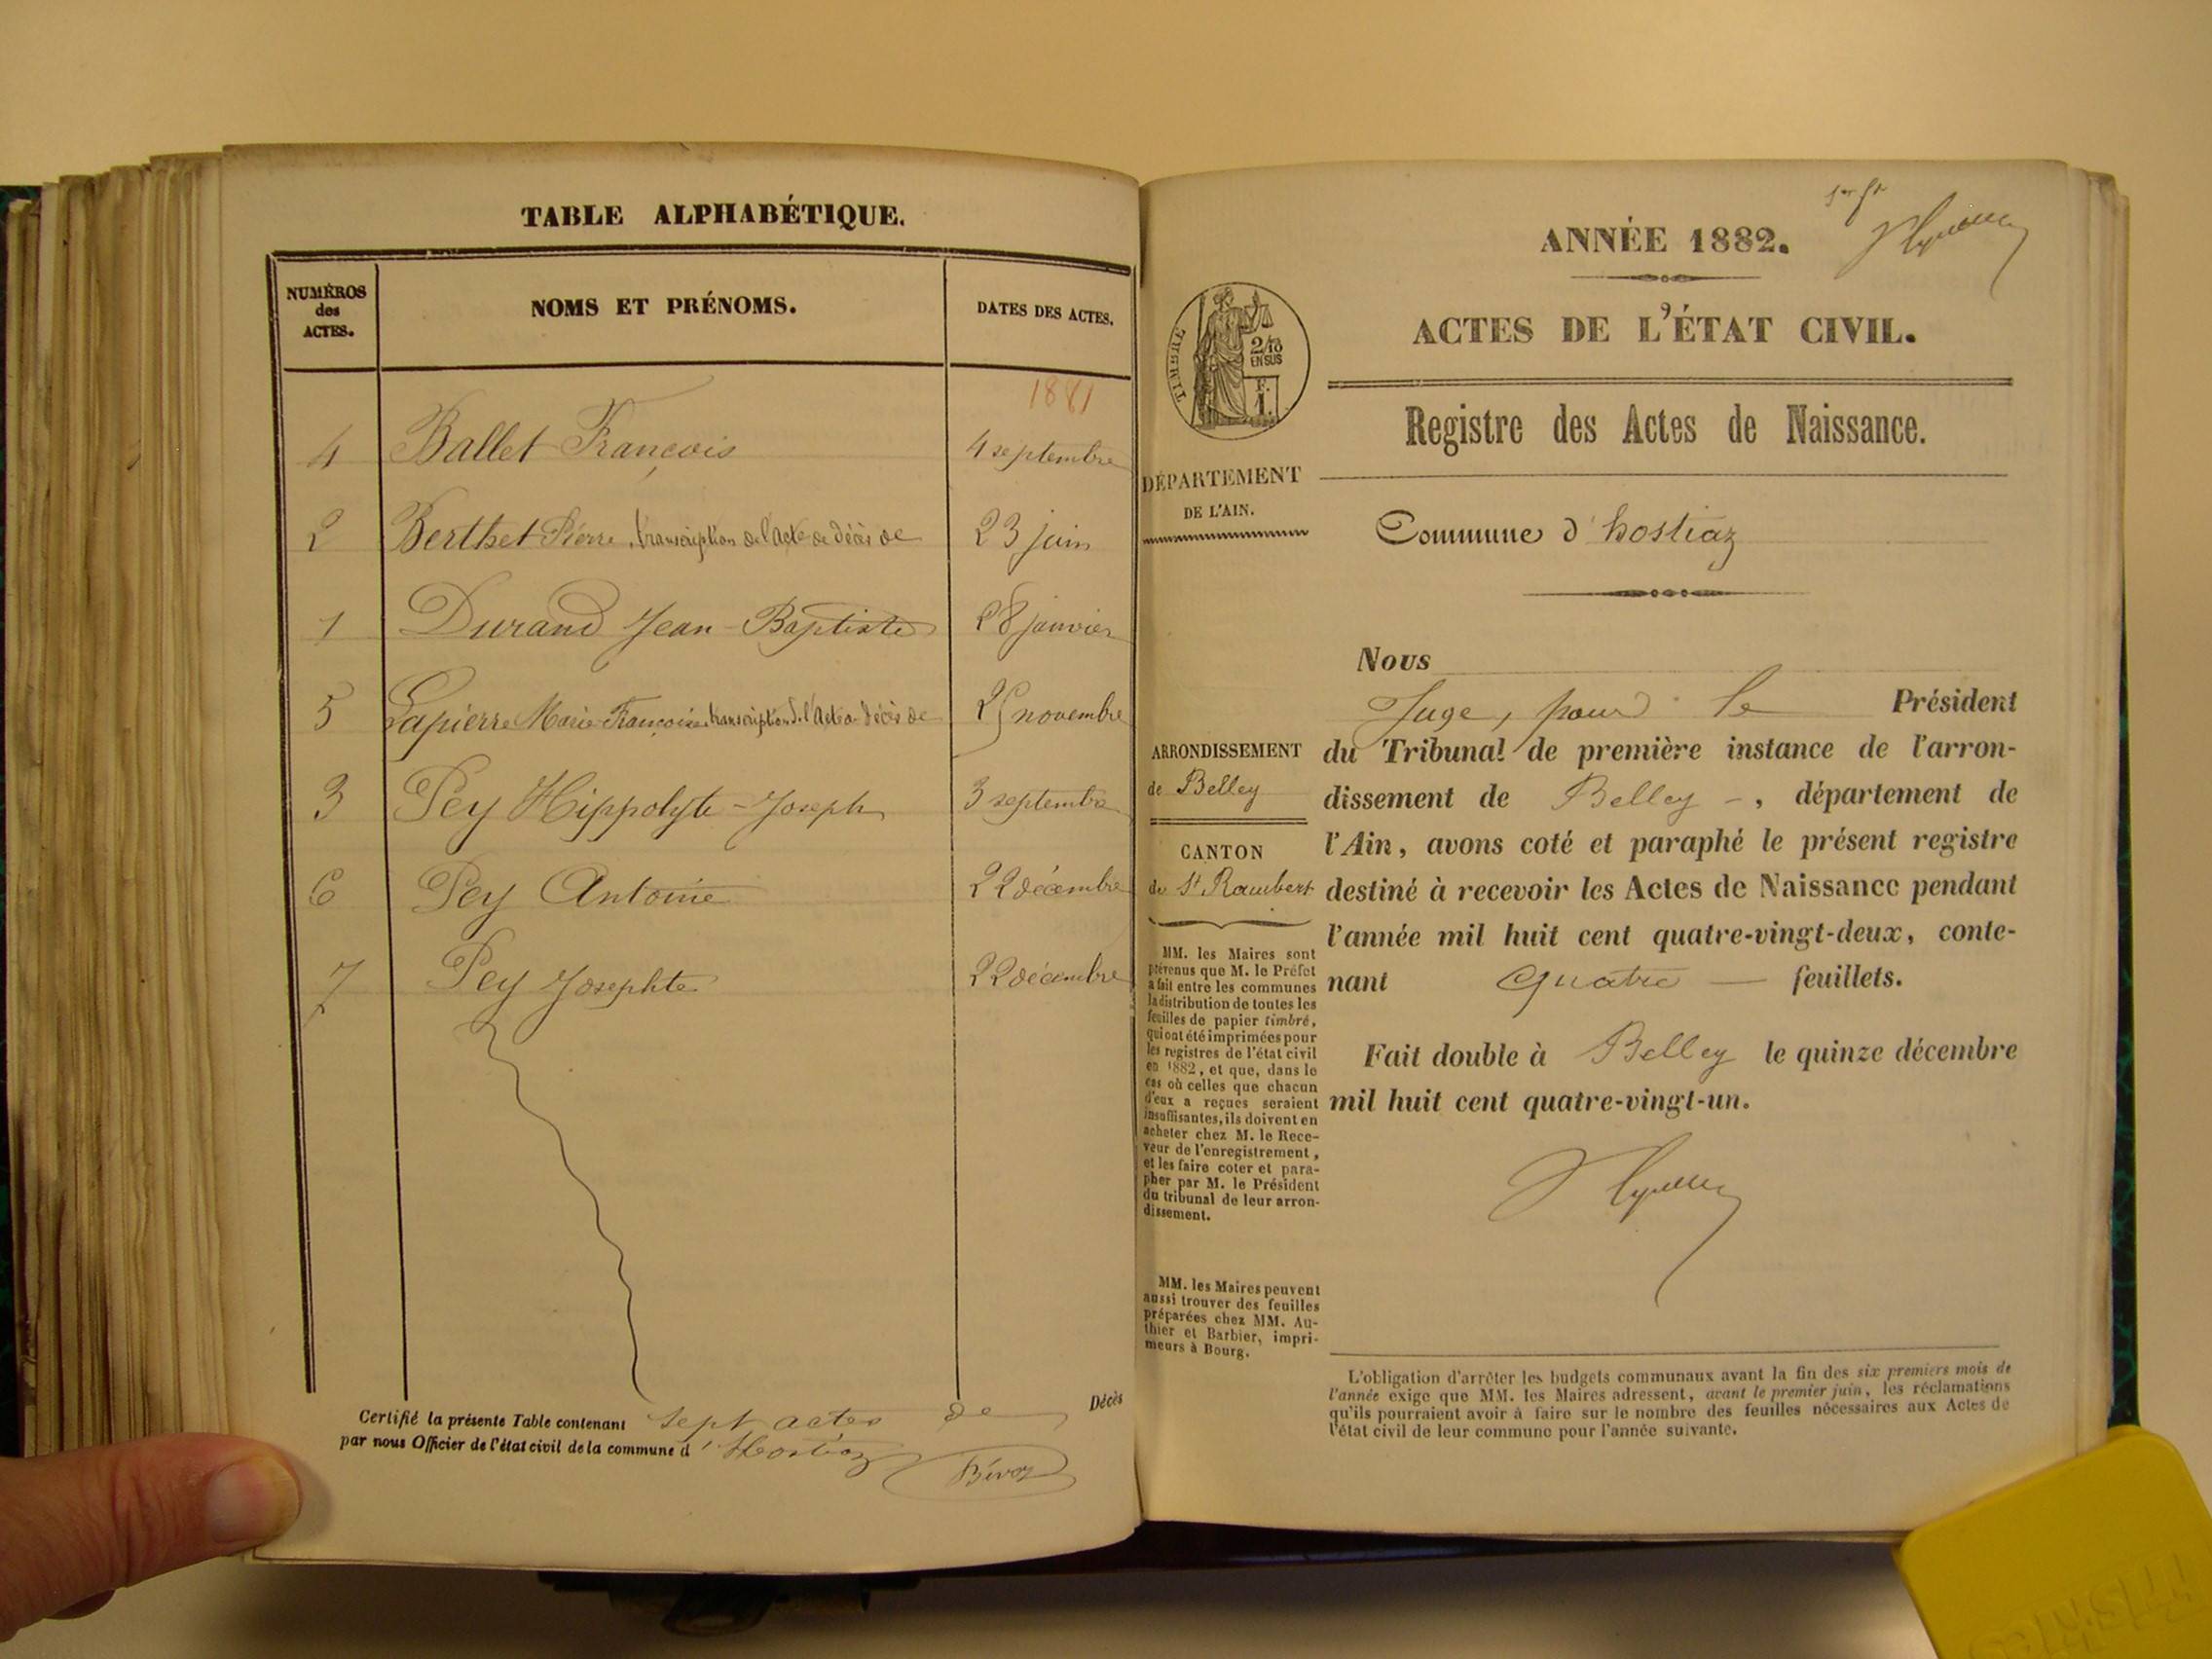 TABLE ALPHABÉTIQUE.
NUMÉROS
des
ACTES.
NOMS ET PRÉNOMS.
DATES DES ACTES.
1881
4 Ballet François 4 septembre
2 Berthet Pierre, transcription de l'acte de décès de 23 juin
1 Durand Jean-Baptiste 28 janvier
5 Lapierre Marie Françoise transcription de l'acte de décès de novembre
3 Pey Hippolyte-Joseph 3 septembre
6 Pey Antoine 22 décembre
7 Pey Josephte 22 décembre
Certifié la présente Table contenant sept actes de Décès
par nous Officier de l'état civil de la commune d'Hostiaz
ANNÉE 1882.
ACTES DE L'ÉTAT CIVIL.
TIMBRE
2/10
EN SUS
F.
1.
Registre des Actes de Naissance.
DÉPARTEMENT
DE L'AIN.
Commune d'hostiaz
Nous
Juge, pour le Président
du Tribunal de première instance de l'arron-
dissement de Belley -, département de
l'Ain, avons coté et paraphé le présent registre
destiné à recevoir les Actes de Naissance pendant
l'année mil huit cent quatre-vingt-deux, conte-
nant quatre — feuillets.
Fait double à Belley le quinze décembre
mil huit cent quatre-vingt-un.
ARRONDISSEMENT
de Belley
CANTON
de St Rambert
MM. les Maires sont
prévenus que M. le Préfet
a fait entre les communes
la distribution de toutes les
feuilles de papier timbré,
qui ont été imprimées pour
les registres de l'état civil
en 1882, et que, dans le
cas où celles que chacun
d'eux a reçues seraient
insuffisantes, ils doivent en
acheter chez M. le Rece-
veur de l'enregistrement,
et les faire coter et para-
pher par M. le Président
du tribunal de leur arron-
dissement.
MM. les Maires peuvent
aussi trouver des feuilles
préparées chez MM. Au-
thier et Barbier, impri-
meurs à Bourg.
L'obligation d'arrêter les budgets communaux avant la fin des six premiers mois de
l'année exige que MM. les Maires adressent, avant le premier juin, les réclamations
qu'ils pourraient avoir à faire sur le nombre des feuilles nécessaires aux Actes de
l'état civil de leur commune pour l'année suivante.